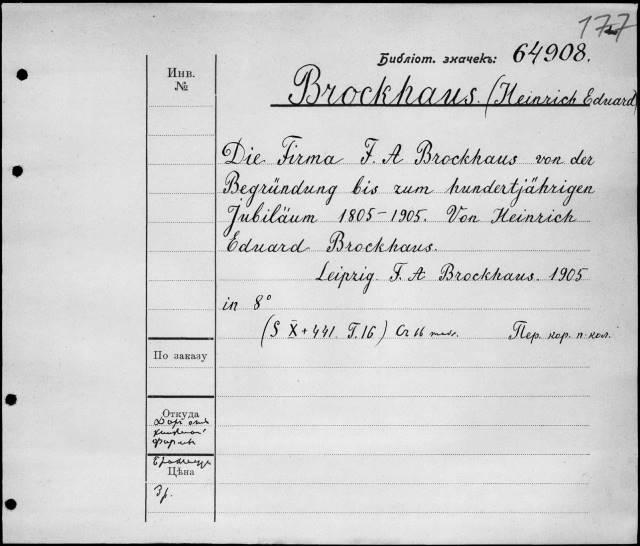 177
Библіот. значекъ: 64908.
Инв.
№
Brockhaus. (Heinrich Eduard)
Die Firma F. A Brockhaus von der
Begründung bis zum hundertjährigen
Jubiläum 1805-1905. Von Heinrich
Eduard Brockhaus.
Leipzig. F. A Brockhaus. 1905
in 8°
(S X + 441. T. 16) Cz 16 Пер. кор. п. кол.
По заказу
Откуда
Даръ отъ
книжной
фирмы
Цѣна
3 р.